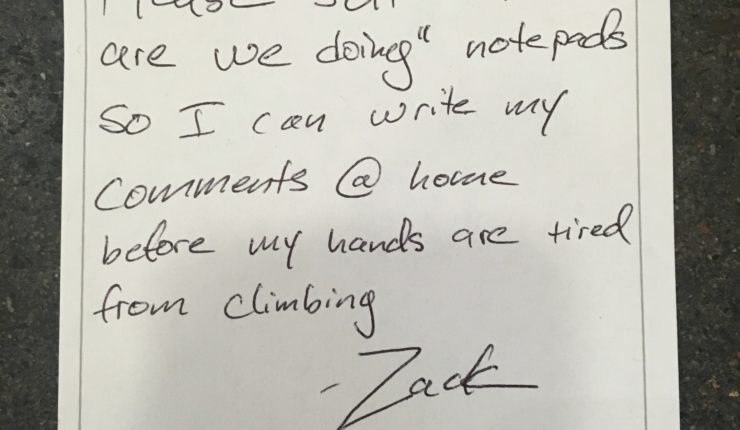 Please
are we doing" notepads
so I can write my
comments @ home
before my hands are tired
from climbing
- Zack